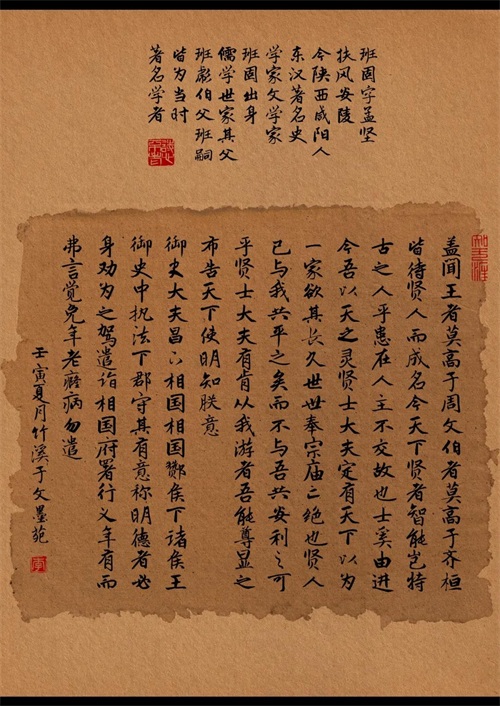 班固字孟坚
扶风安陵
今陕西咸阳人
东汉著名史
学家文学家
班固出身
儒学世家其父
班彪伯父班嗣
皆为当时
著名学者
盖闻王者莫高于周文伯者莫高于齐桓
皆待贤人而成名今天下贤者智能岂特
古之人乎患在人主不交故也士奚由进
今吾以天之灵贤士大夫定有天下以为
一家欲其长久世世奉宗庙亡绝也贤人
已与我共平之矣而不与吾共安利之可
乎贤士大夫有肯从我游者吾能尊显之
布告天下使明知朕意
御史大夫昌下相国相国酂侯下诸侯王
御史中执法下郡守其有意称明德者必
身劝为之驾遣诣相国府署行义年有而
弗言觉免年老癃病勿遣
壬寅夏月竹溪于文墨苑